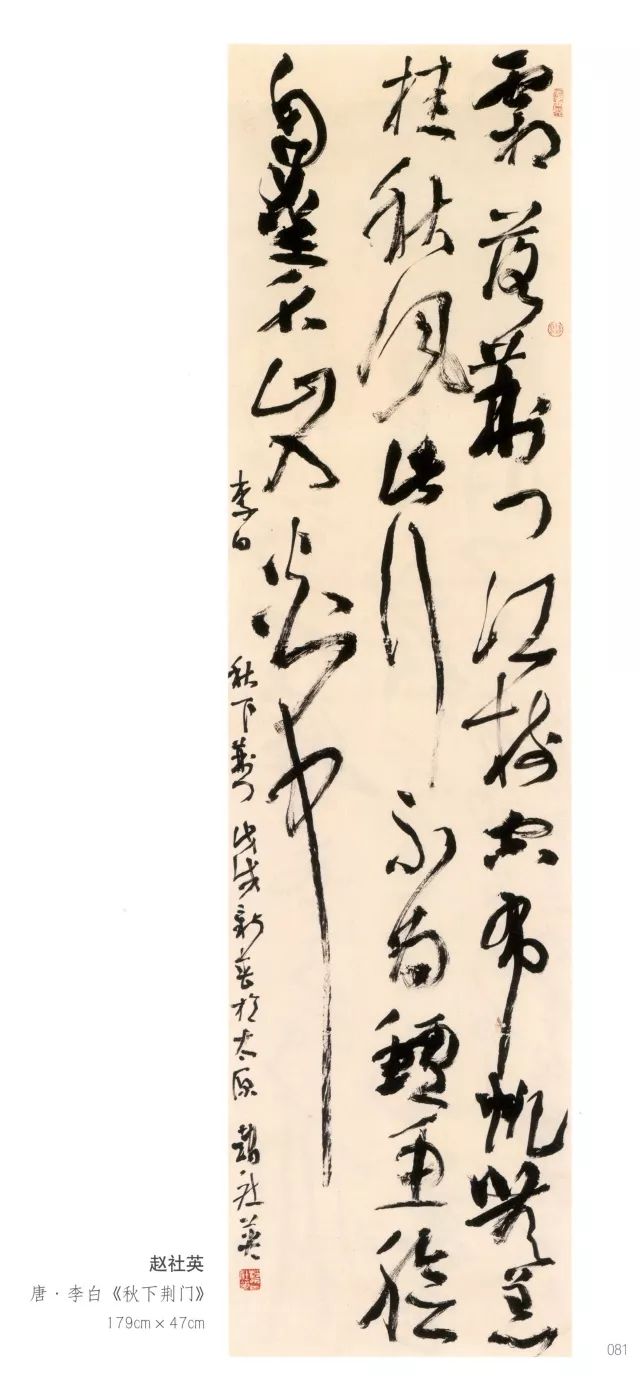 霜落荆門江樹空布帆無恙
挂秋風此行不為鱸魚膾
自愛名山入剡中
李白秋下荆門戊戌新春於太原趙社英
赵社英
唐·李白《秋下荆门》
179cm×47cm
081